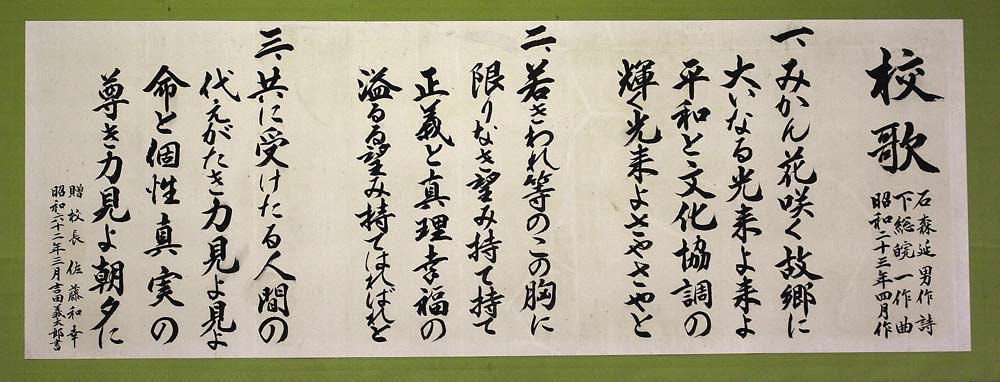 校歌
石森延男作詩
下総皖一作曲
昭和二十三年四月作
一、みかん花咲く故郷に
大いなる光来よ来よ
平和と文化協調の
輝く光来よさやさやと
二、若きわれ等のこの胸に
限りなき望み持て持て
正義と真理幸福の
溢るる望み持てはればれと
三、共に受けたる人間の
代えがたき力見よ見よ
命と個性真実の
尊き力見よ朝夕に
贈 校長 佐藤和幸
昭和六十二年三月吉田義太郎書